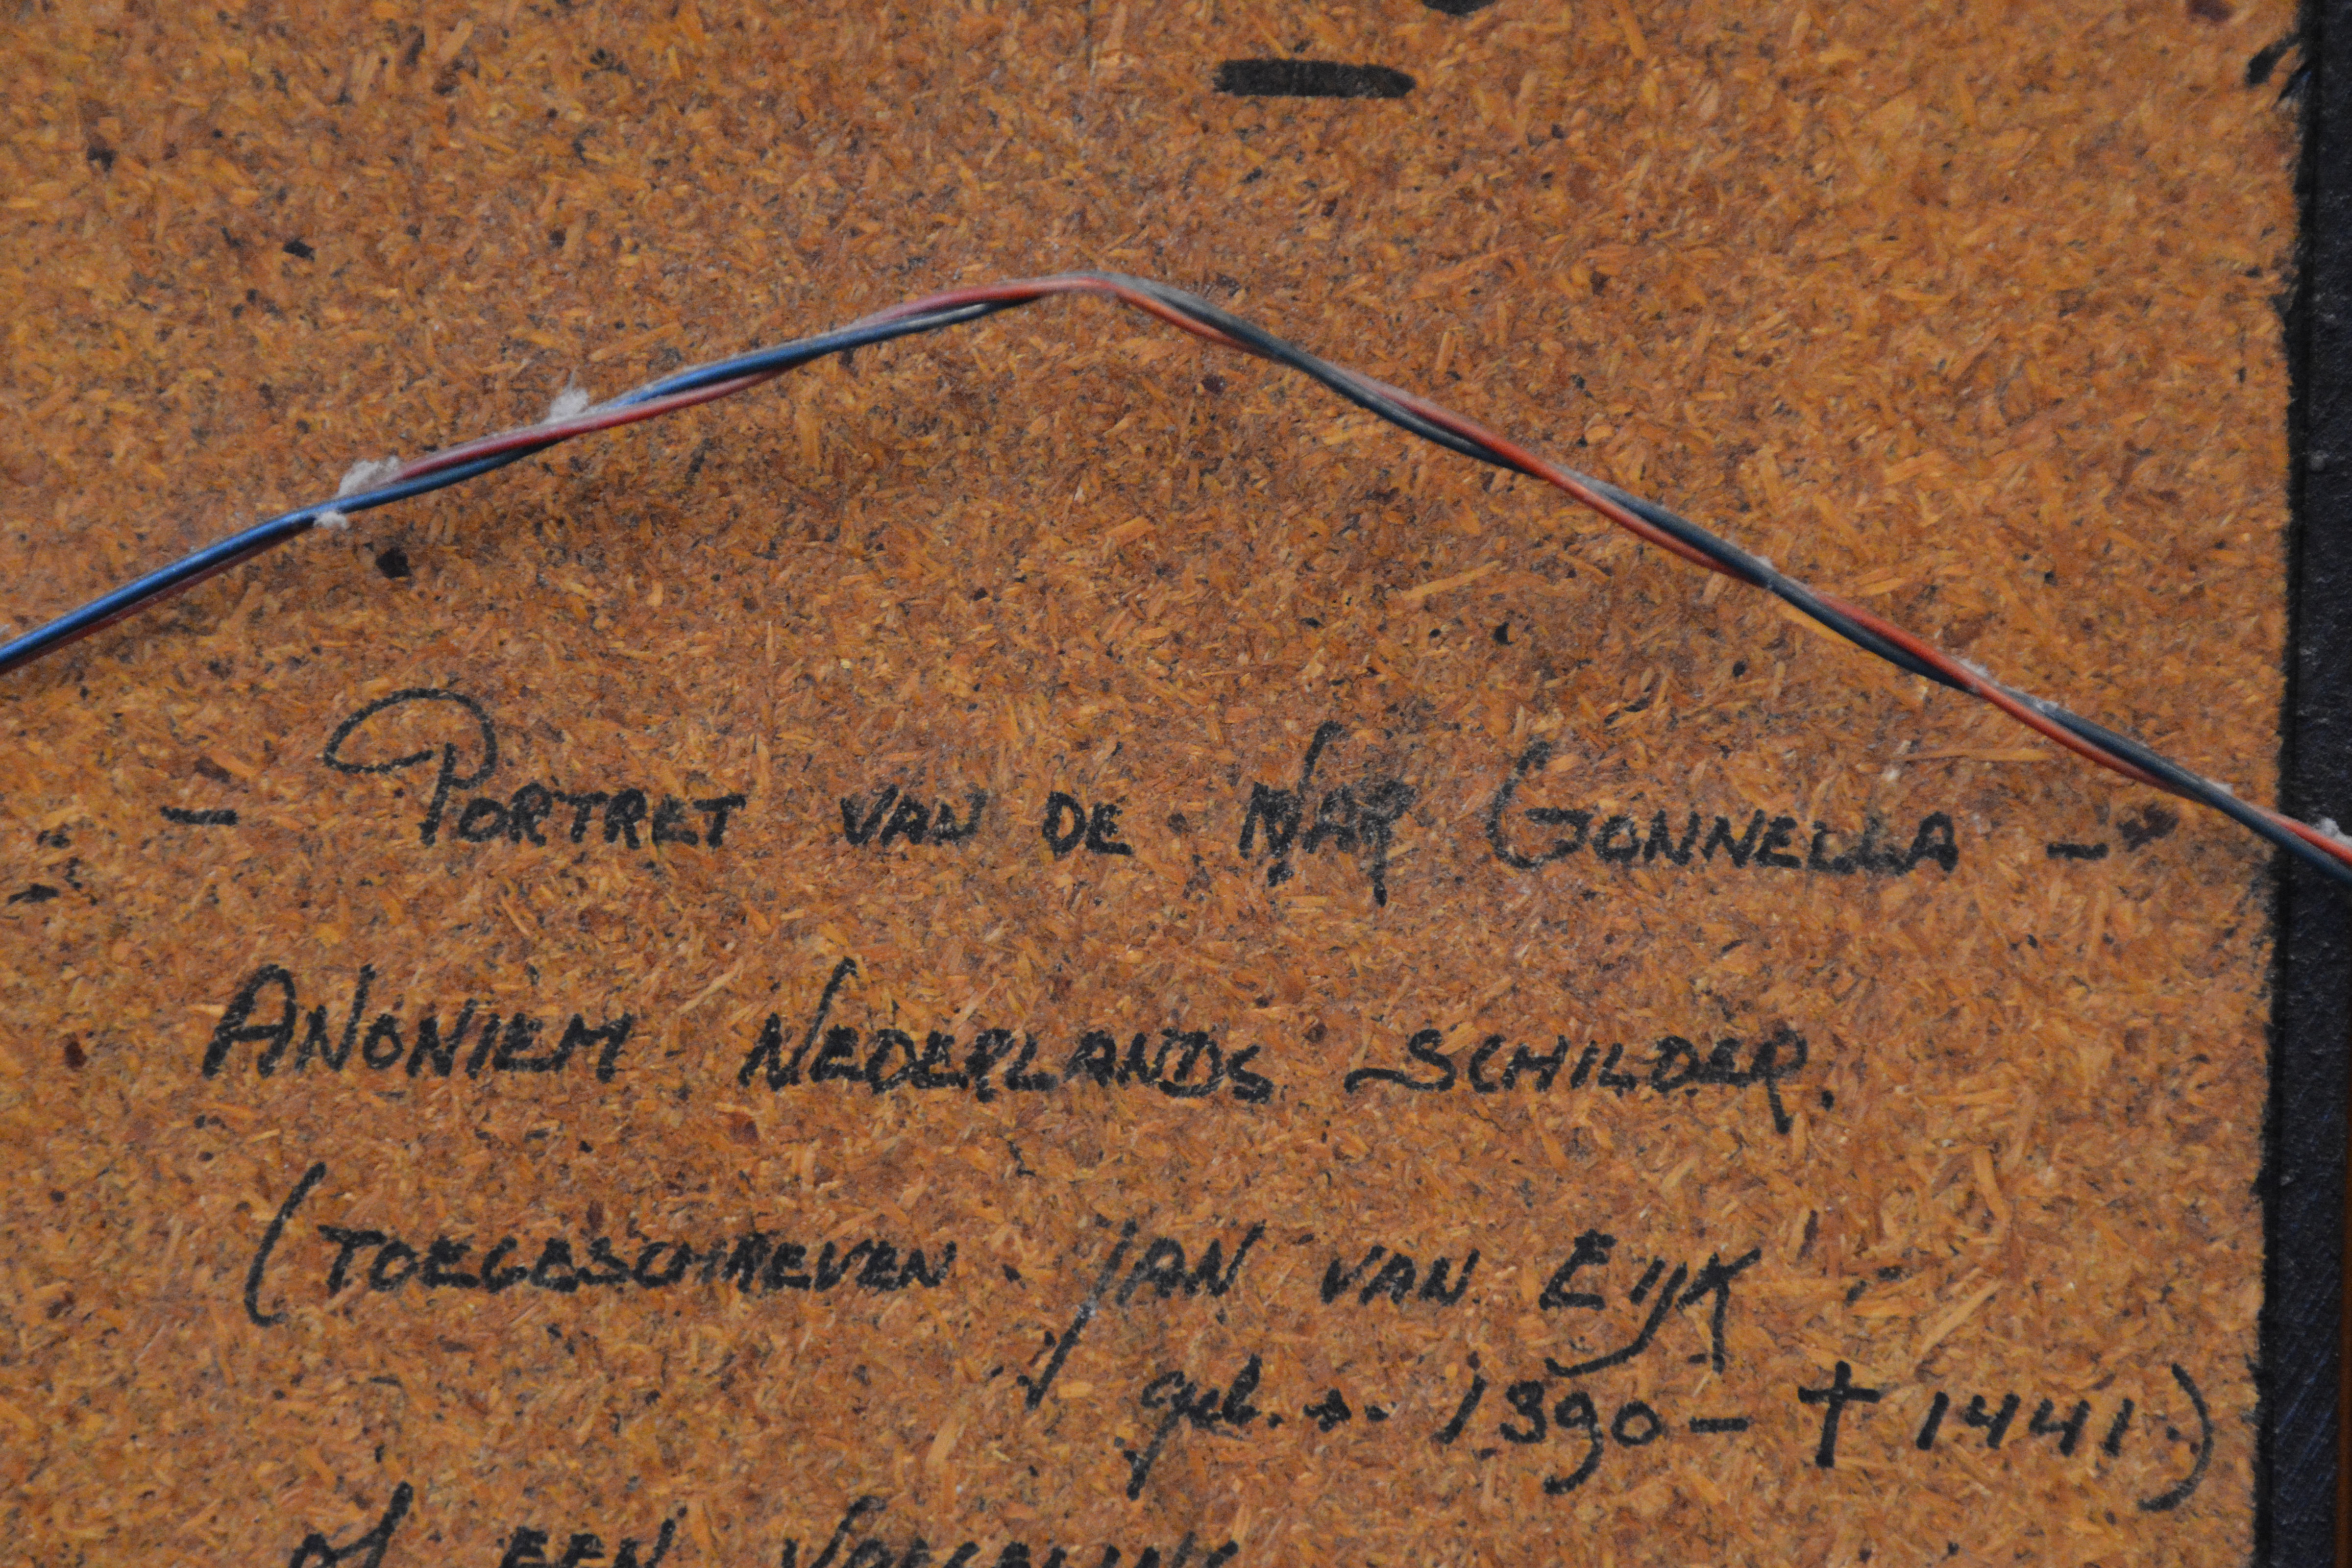 - PORTRET VAN DE NAR GONNELLA -
ANONIEM NEDERLANDS SCHILDER.
(TOEGESCHREVEN JAN VAN EIJK
geb. ± 1390 - † 1441)
of EEN